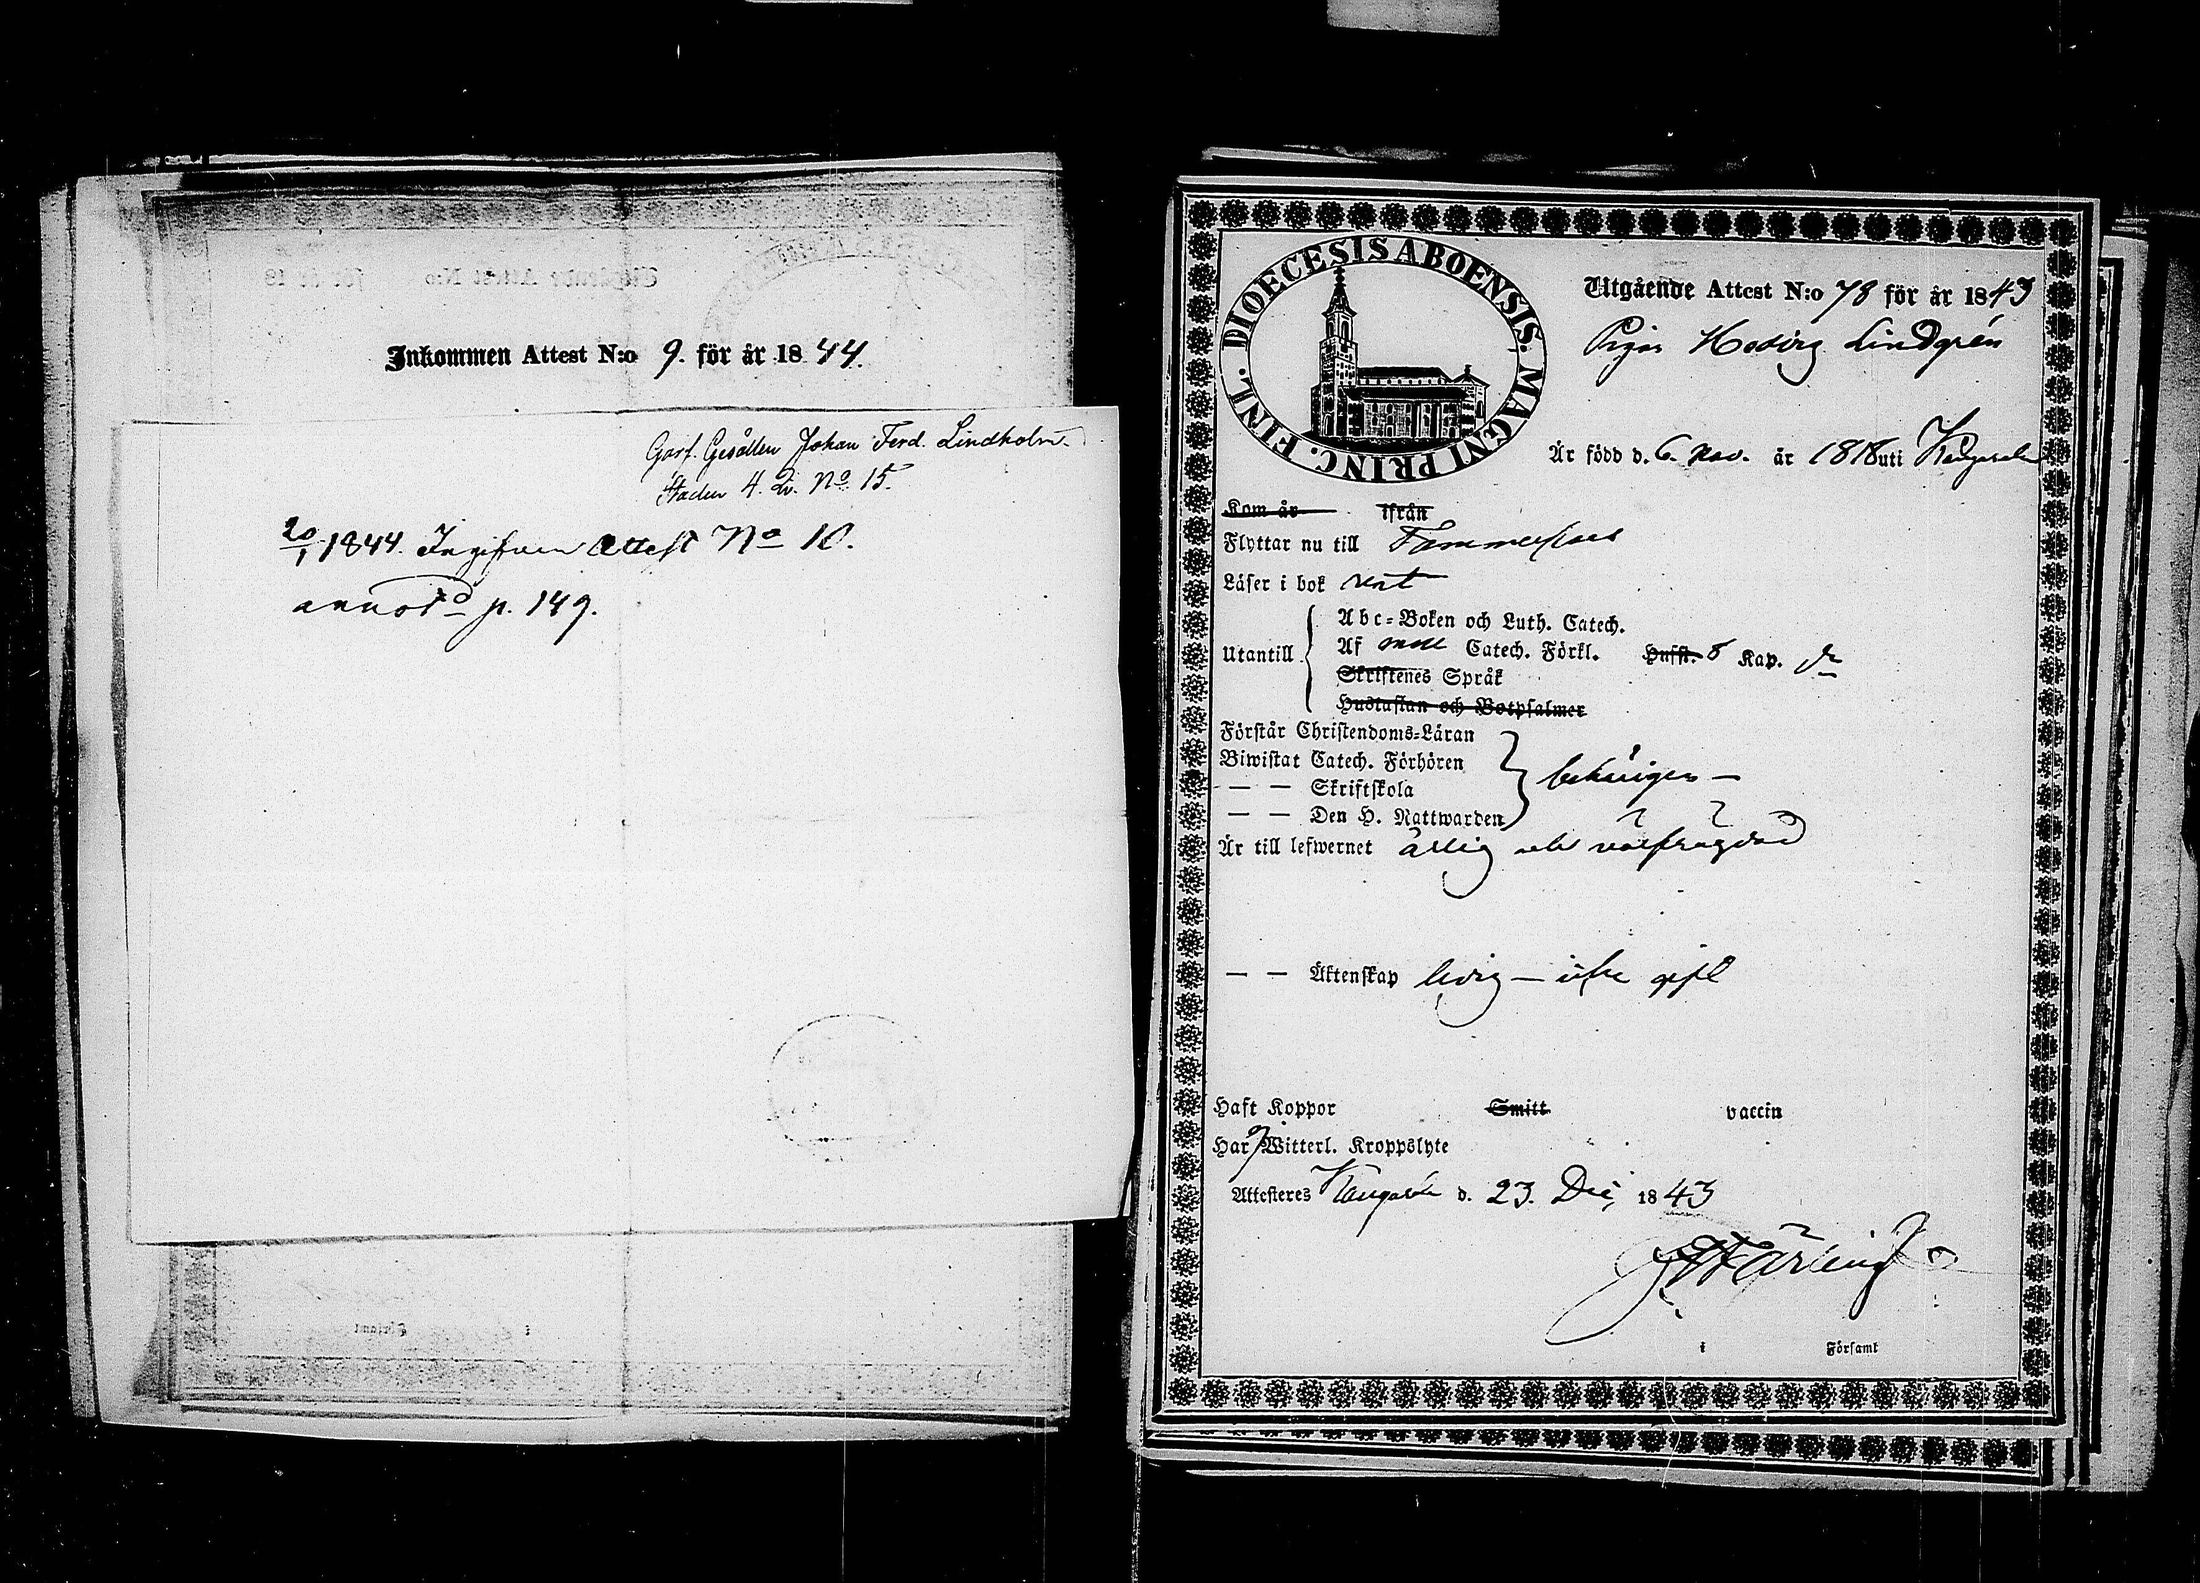 Inkommen Attest N:o 9. för år 1844.
Garf. Gesällen Johan Ferd. Lindholm.
Staden 4. Qv. No. 15.
20/1 1844. Ingifven Attest No 10.
annotd p. 149.
DIOECESIS ABOENSIS. MAGNI PRINC. FINL.
Utgående Attest N:o 78 för år 1843
Pigan Hedvig Lindgrén
Är född d. 6. Nov. år 1818 uti Kangasala
Kom år ifrån
Flyttar nu till Tammerfors
Läser i bok rent
Abc-Boken och Luth. Catech.
Utantill Af mell Catech. Förkl. Husft. 8 Kap.
Skriftenes Språk
Hustaflan och Botpsalmer
Förstår Christendoms-Läran
Biwistat Catech. Förhören behörigen —
— — Skriftskola
— — Den H. Nattwarden
Är till lefwernet ärlig och välfrägdad
— — Äktenskap ledig — icke
Haft Koppor Smitt vaccin
Har Witterl. Kroppslyte
Attesteres Kangasala d. 23. Dec, 1843
i Församl